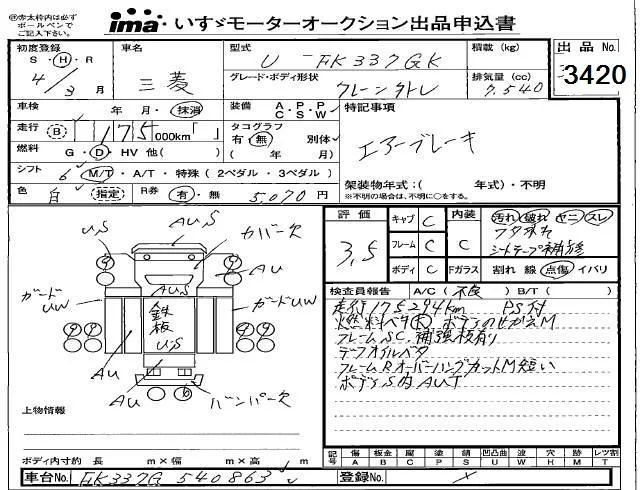 ㊟赤太枠内は必ず
ボールペンで
ご記入下さい。
ima いすゞモーターオークション出品申込書
初度登録 S・H・R 4/3 月
車名 三菱
型式 U-FK337GK
積載 (kg)
出品 No. 3420
グレード・ボディ形状 クレーン付トレ
排気量 (cc) 7,540
車検 年・月・抹消
装備 A・P・P C・S・W
特記事項
走行 B 175 000km「 」
タコグラフ 有・無 別体
エアーブレーキ
燃料 G・D・HV 他( )
( 年 月)
シフト 6 M/T・A/T・特殊(2ペダル・3ペダル)
架装物年式:( 年式)・不明
※不明の場合は、不明に○をする。
色 白 指定 R券 有・無 5,070 円
評価 3,5
キャブ C
内装 C
汚れ 破れ ヤニ スレ
フタ外れ
シートテープ補修
フレーム C
ボディ C
Fガラス S
割れ 線 点傷 イバリ
検査員報告 A/C(不良) B/T( )
走行175294km PS付
燃料ベタ大 ボディのせがえM
フレームSC 補強板有り
デフオイルベタ
フレームRオーバーハングカットM短い
ボディS内AUT
US
AUS
カバー欠
AU
AUS
ガードUW
ガードUW
鉄板
US
AU
AU
バンパー欠
上物情報
ボディ内寸約 長 m×幅 m×高 m
記号 傷A 板金B 腐C 塗P 錆S 凹凸曲U 波W 穴H 跡M レツ割T
車台No. FK337G 540863
登録No.